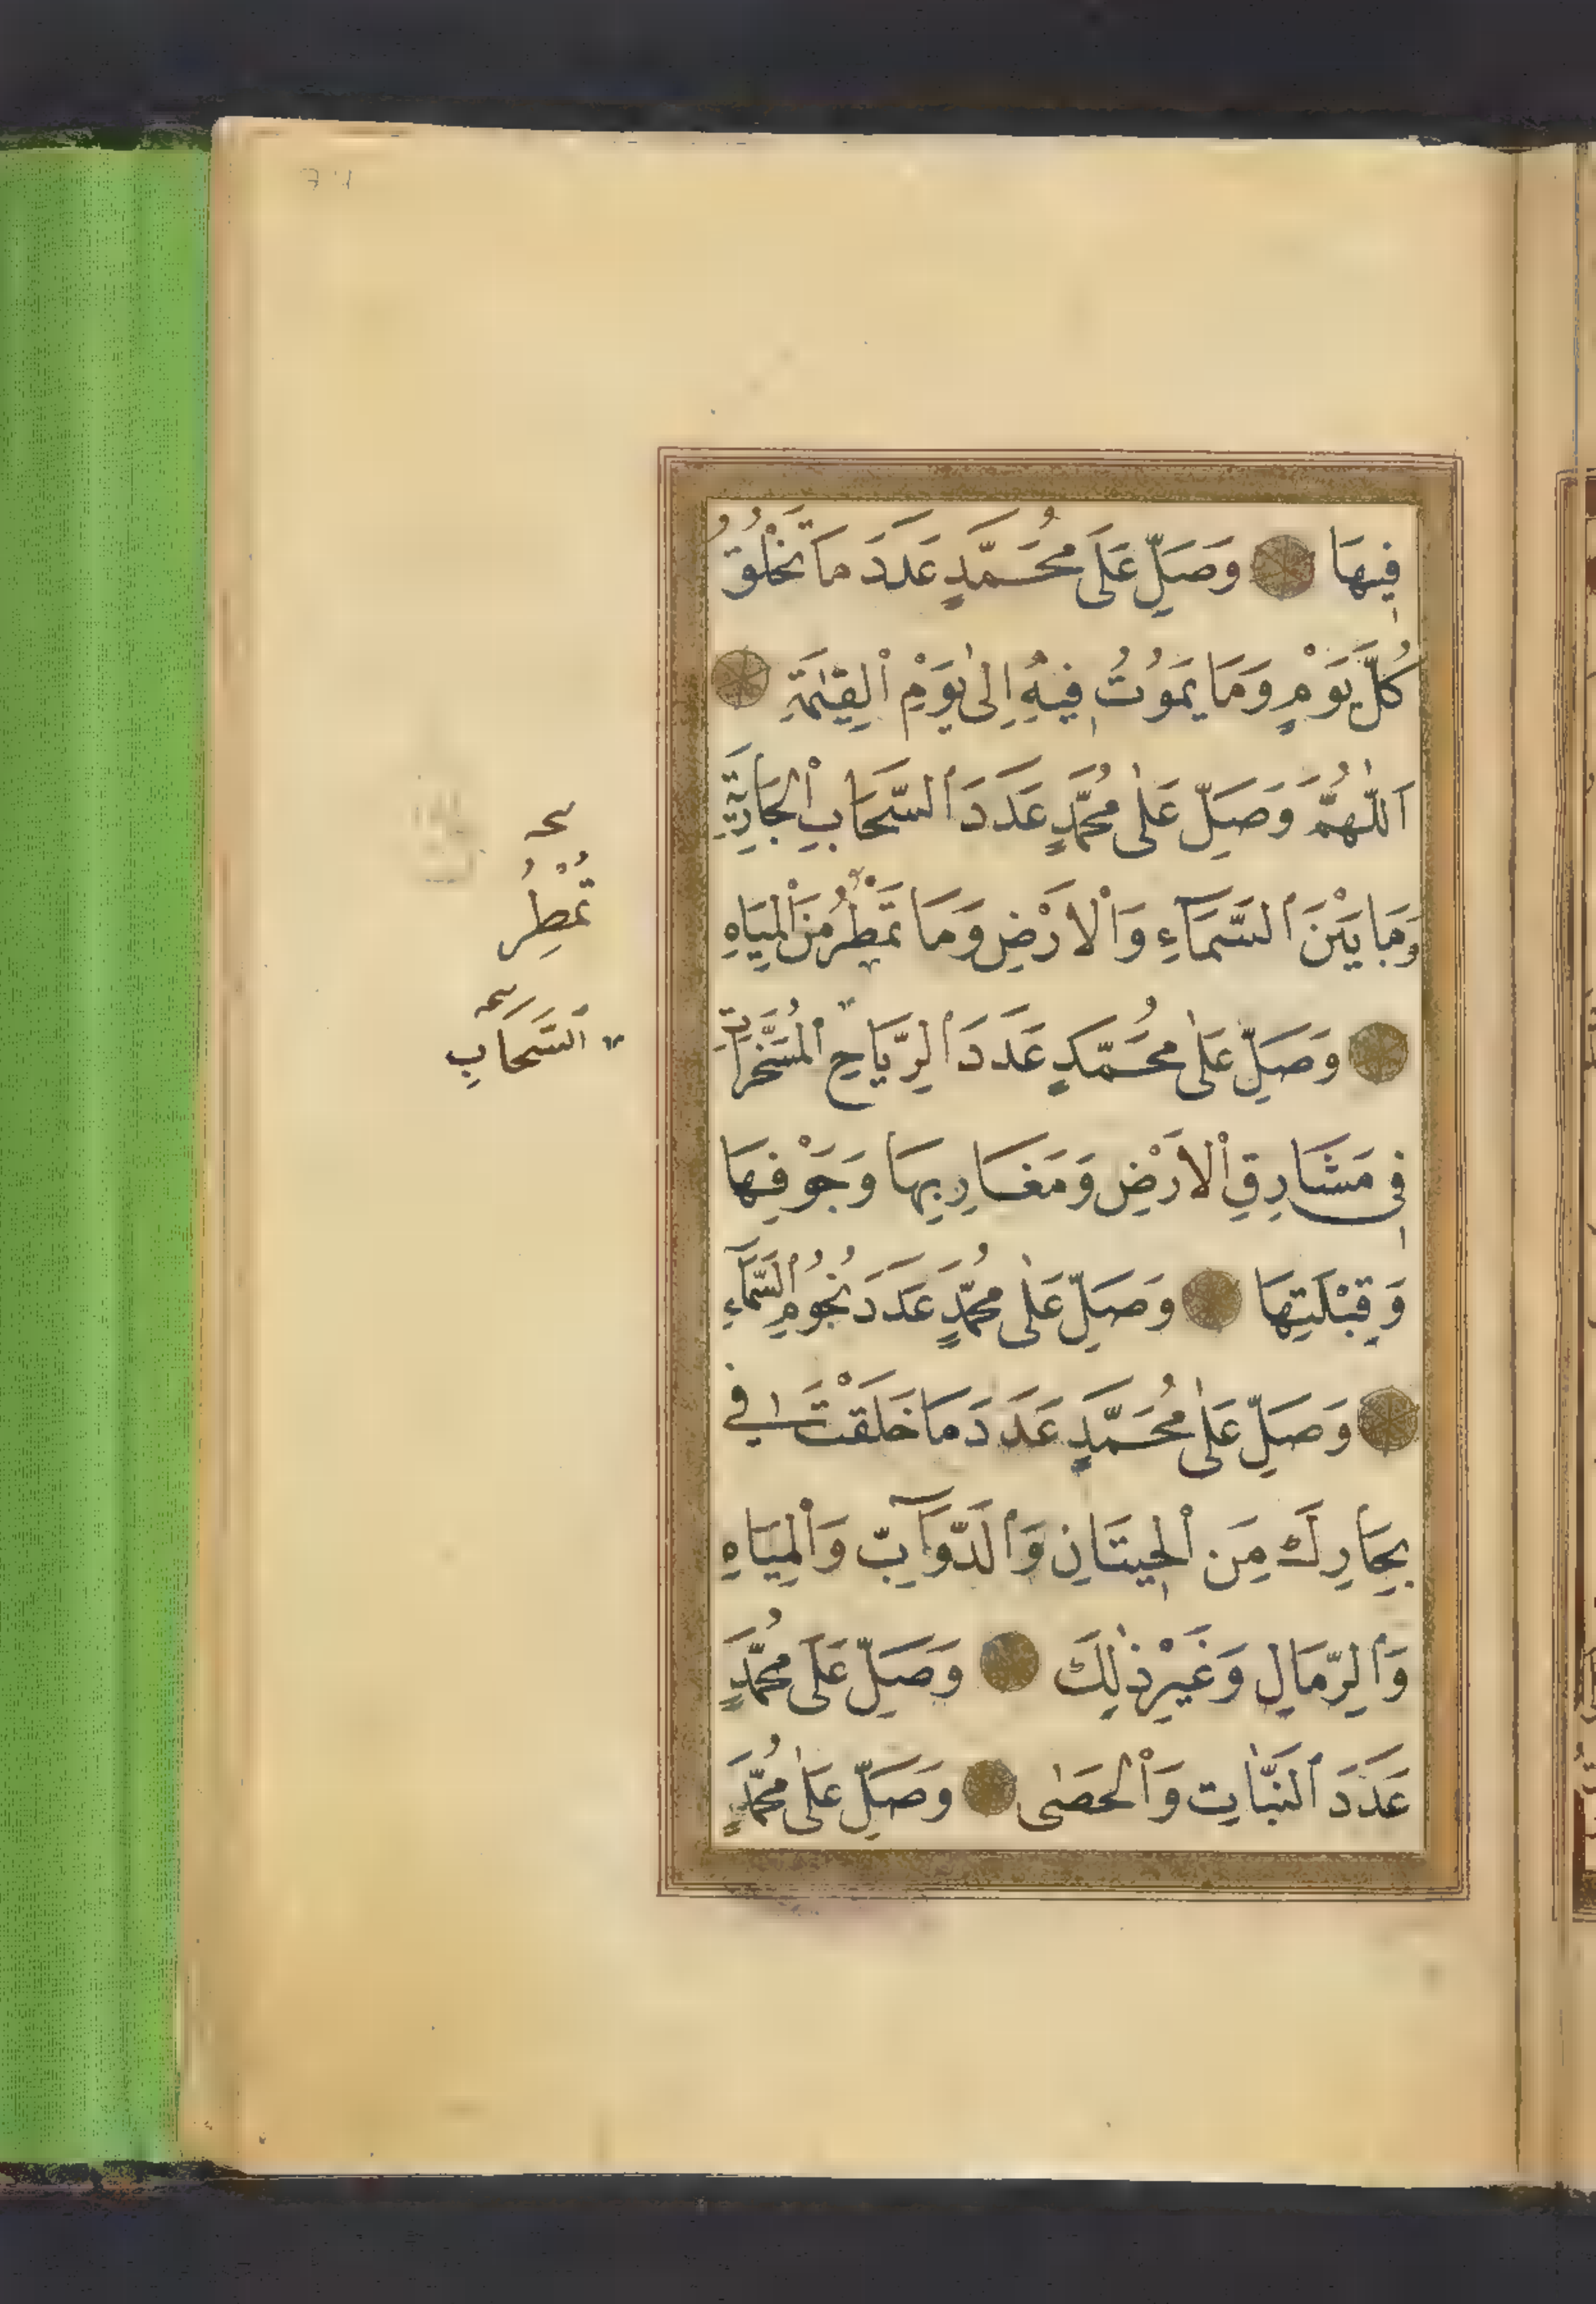 فِيهَا وَصَلِّ عَلَى مُحَمَّدٍ عَدَدَ مَا تَخْلُقُ
كُلَّ يَوْمٍ وَمَا يَمُوتُ فِيهِ إِلَىٰ يَوْمِ ٱلْقِيٰمَةِ
اَللّٰهُمَّ وَصَلِّ عَلٰى مُحَمَّدٍ عَدَدَ ٱلسَّحَابِ ٱلْجَارِيَةِ
وَمَا بَيْنَ ٱلسَّمَآءِ وَٱلْاَرْضِ وَمَا تَمْطُرُ مِنَ ٱلْمِيَاهِ
وَصَلِّ عَلٰى مُحَمَّدٍ عَدَدَ ٱلرِّيَاحِ ٱلْمُسَخَّرَاتِ
فِي مَشَارِقِ ٱلْاَرْضِ وَمَغَارِبِهَا وَجَوْفِهَا
وَقِبْلَتِهَا وَصَلِّ عَلٰى مُحَمَّدٍ عَدَدَ نُجُومِ ٱلسَّمَآءِ
وَصَلِّ عَلٰى مُحَمَّدٍ عَدَدَ مَا خَلَقْتَ فِي
بِحَارِكَ مِنَ ٱلْحِيتَانِ وَٱلدَّوَآبِّ وَٱلْمِيَاهِ
وَٱلرِّمَالِ وَغَيْرِ ذٰلِكَ وَصَلِّ عَلَى مُحَمَّدٍ
عَدَدَ ٱلنَّبَاتِ وَٱلْحَصٰى وَصَلِّ عَلٰى مُحَمَّدٍ
تُمْطِرُ
ٱلسَّحَابِ